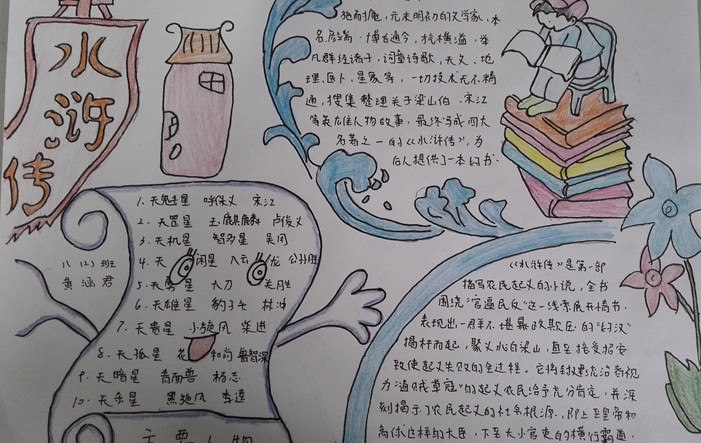 水
浒
传
施耐庵,元末明初的文学家,本
名彦端。博古通今,
群经诸子,词章诗歌,天文、地
理、医卜、星象等,一切技术无不精
通,搜集整理关于梁山伯、宋江
等英雄人物故事,最终写成四大
名著之一的《水浒传》,为
后人提供了一本好书。
1、天魁星 呼保义 宋江
2、天罡星 玉麒麟 卢俊义
3、天机星 智多星 吴用
4、天闲星 入云龙 公孙胜
5、天勇星 大刀 关胜
6、天雄星 豹子头 林冲
7、天贵星 小旋风 柴进
8、天孤星 花和尚 鲁智深
9、天暗星 青面兽 杨志
10、天杀星 黑旋风 李逵
主要人物
八(2)班
黄涵君
《水浒传》是第一部
描写农民起义的小说,全书
围绕“官逼民反”这一线索展开情节。
表现出一群不堪暴政欺压的“好汉”
揭杆而起,聚义水泊梁山,直至接受招安
致使起义失败的全过程。它将封建统治者视
为“盗贼草寇”的起义农民给予充分肯定,并深
刻揭示了农民起义的社会根源,即上至皇帝和
高俅这样的大臣,下至大小官吏的横行霸道。